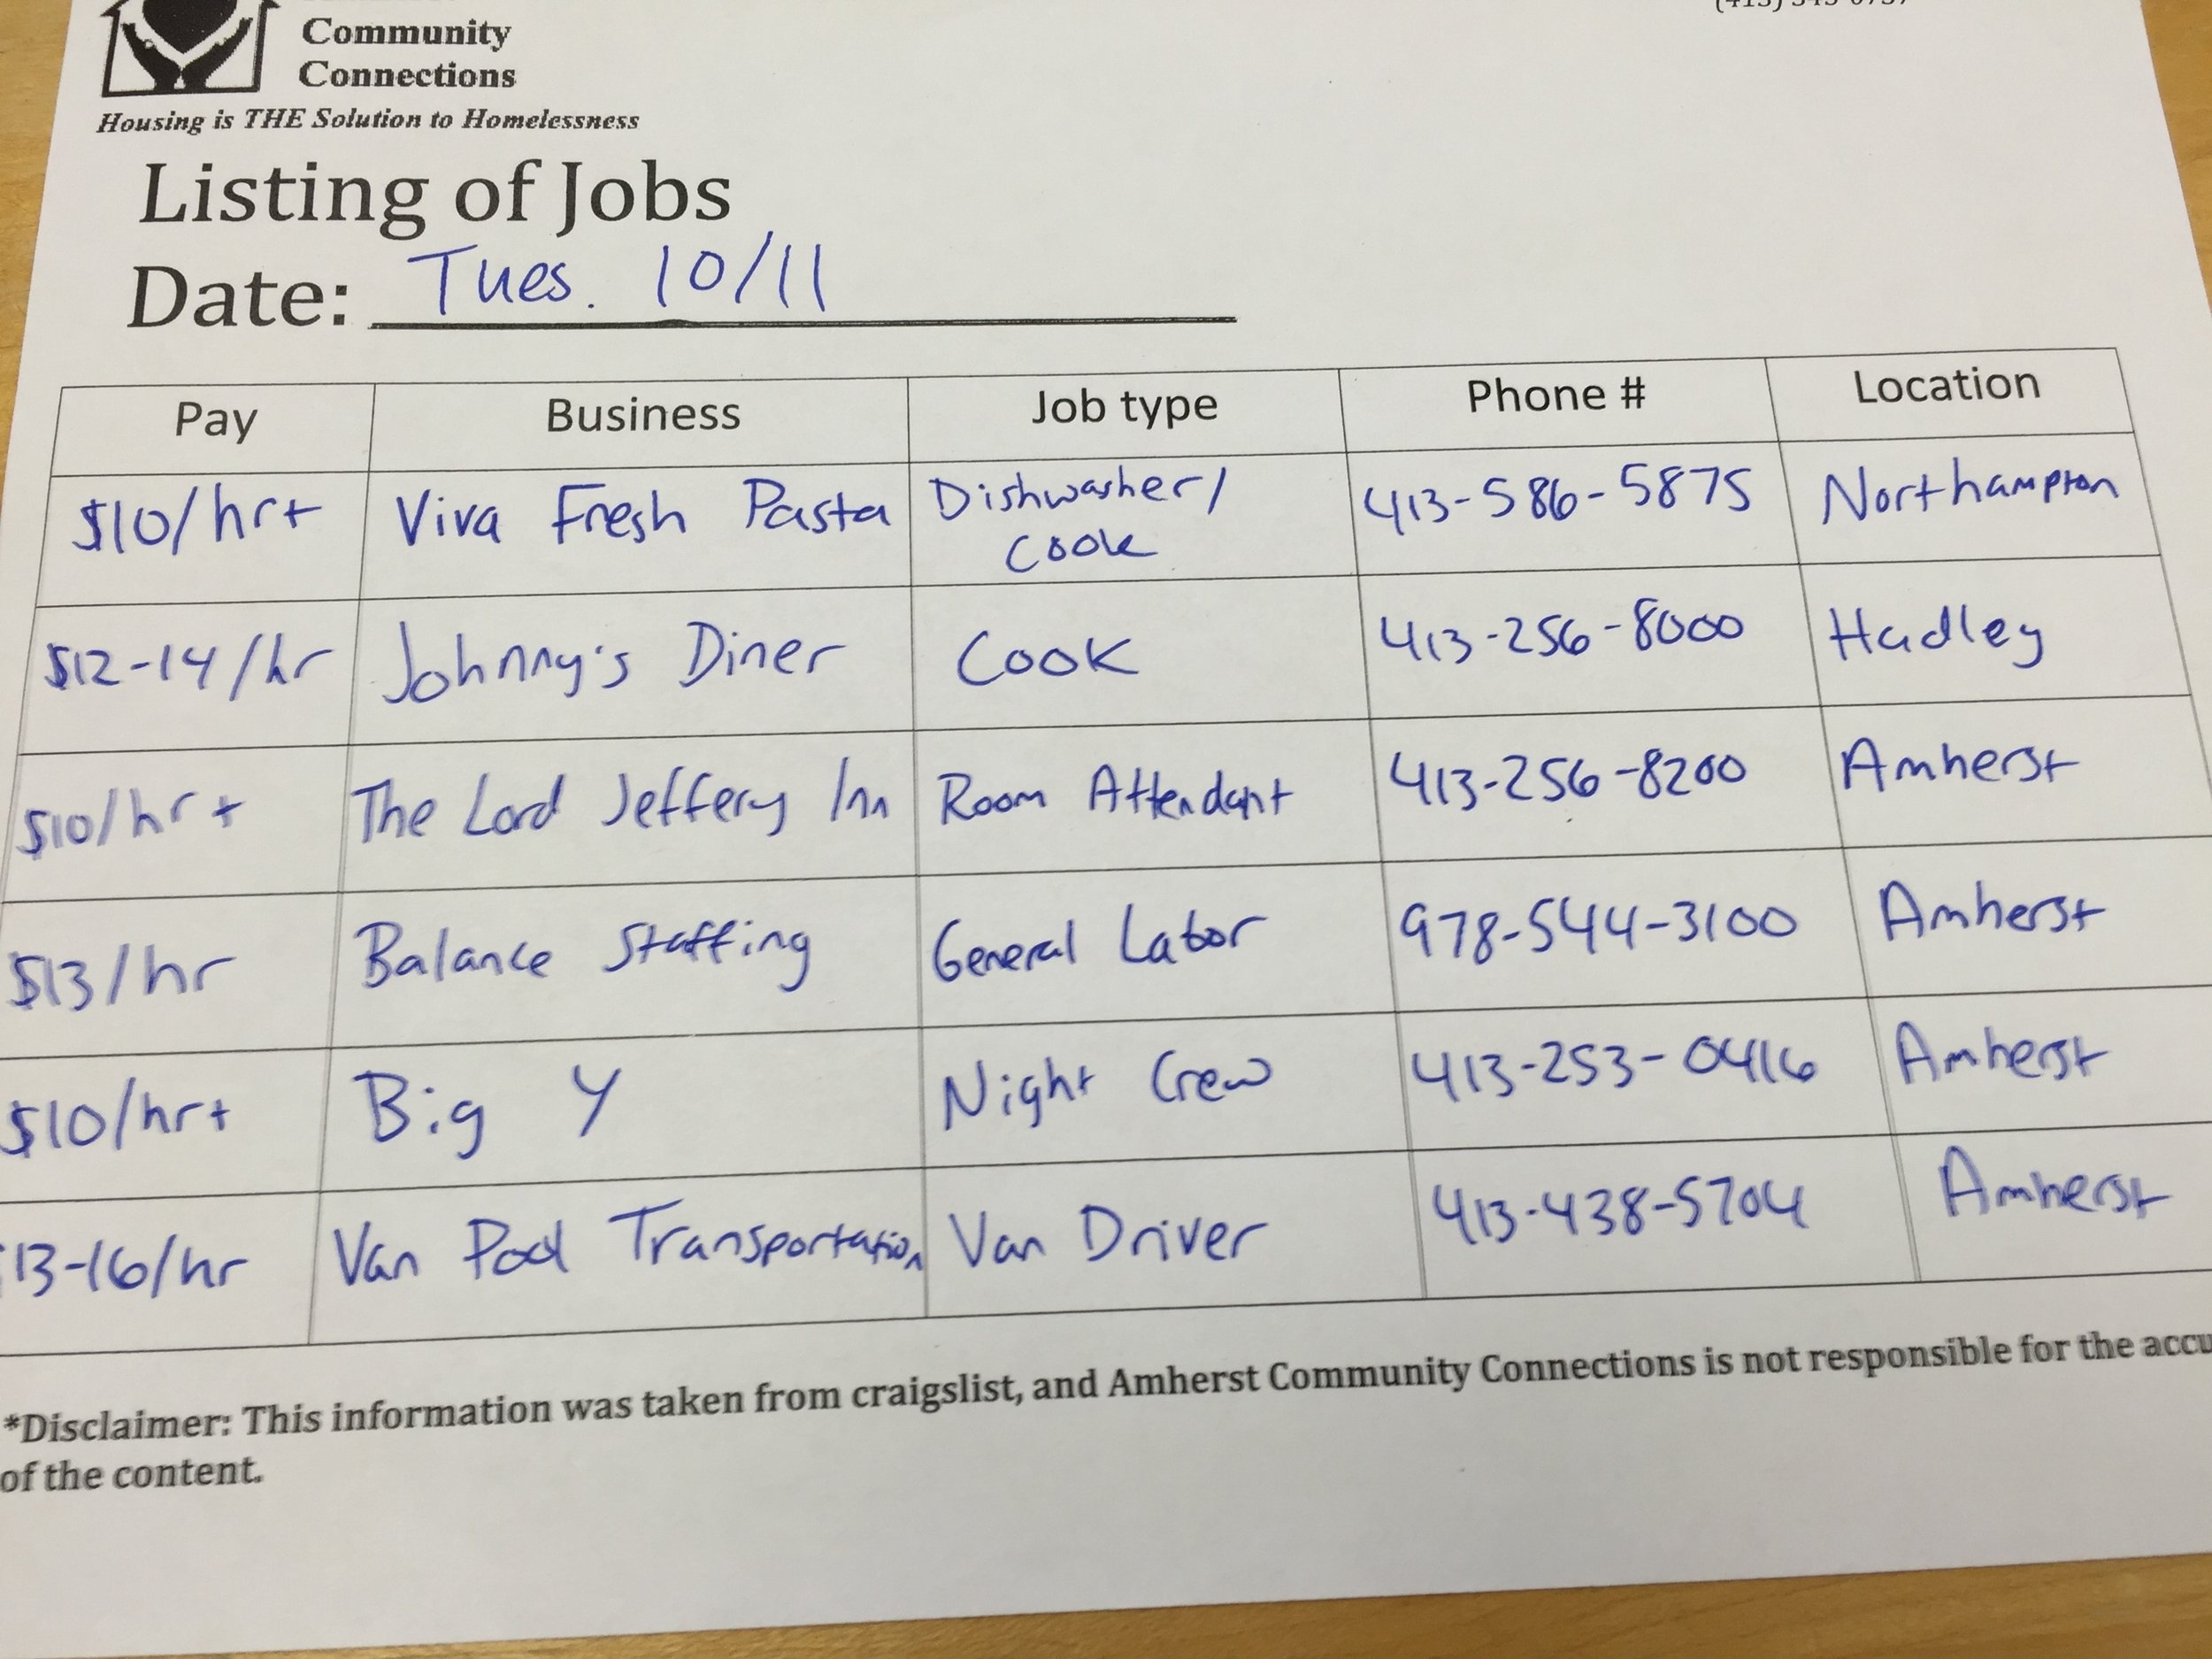 Community
Connections
Housing is THE Solution to Homelessness
Listing of Jobs
Date: Tues. 10/11
Pay Business Job type Phone # Location
$10/hr+ Viva Fresh Pasta Dishwasher/ 413-586-5875 Northampton
Cook
$12-14/hr Johnny's Diner Cook 413-256-8000 Hadley
$10/hr+ The Lord Jeffery Inn Room Attendant 413-256-8200 Amherst
$13/hr Balance Staffing General Labor 978-544-3100 Amherst
$10/hr+ Big Y Night Crew 413-253-0416 Amherst
13-16/hr Van Pool Transportation Van Driver 413-438-5704 Amherst
*Disclaimer: This information was taken from craigslist, and Amherst Community Connections is not responsible for the accu
of the content.